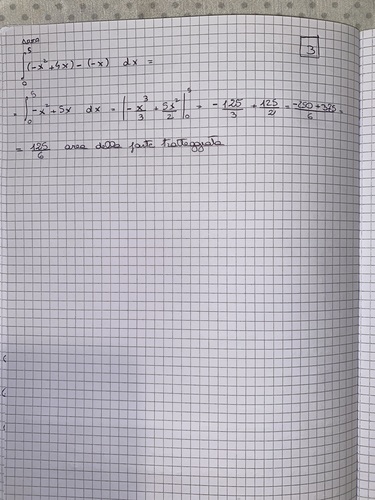 Area
3
∫₀⁵ (-x²+4x) - (-x) dx =
= ∫₀⁵ -x²+5x dx = |-x³/3 + 5x²/2|₀⁵ = -125/3 + 125/2 = -250+375/6 =
= 125/6 area della parte tratteggiata